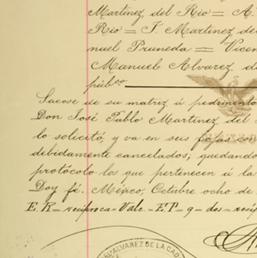 Martinez del Rio = A.
Rio = J. Martinez de
nuel Pruneda = Vicen
Manuel Alvarez d
púbco
Sacose de su matriz á pedimento
Don José Pablo Martinez del
lo solicitó, y va en seis fojas con
debidamente cancelados; quedando
protócolo los que pertenecen á la
Doy fé. México, Octubre ocho de
E. R. recíproca - Vale. - E P - 9 - dos - recíp
ALVAREZ DE LA CAD